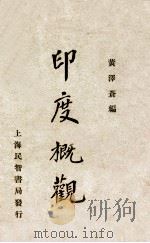 黃澤蒼編
印度概觀
上海民智書局發行